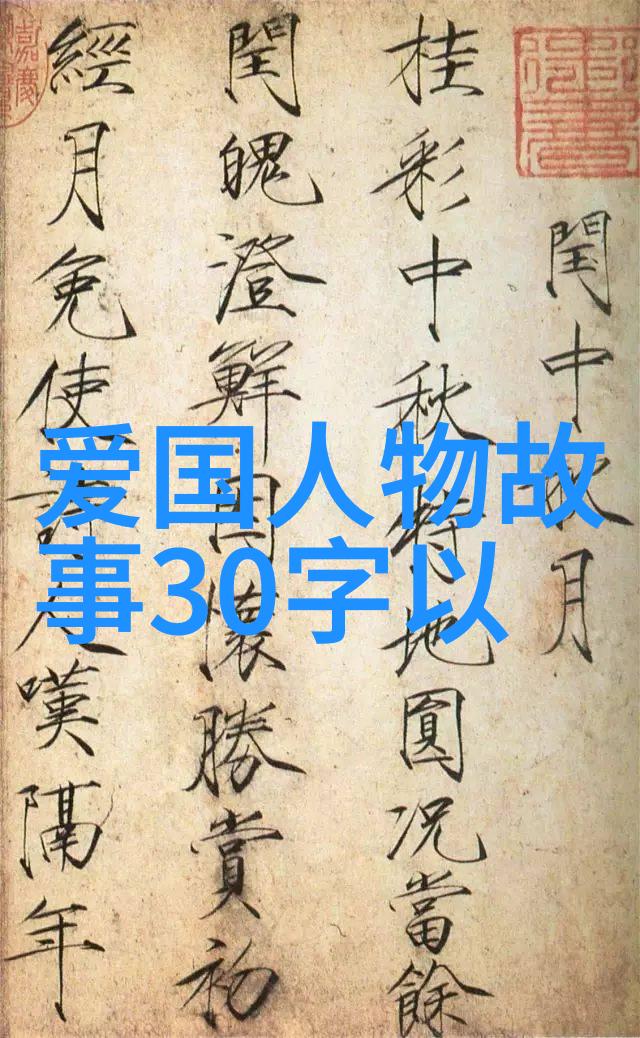 閏中秋月
桂彩中秋特地圓况當餘
閏魄澄鮮因懷勝賞初
經月免使詩人嘆隔年
爱国人物故
事30字以